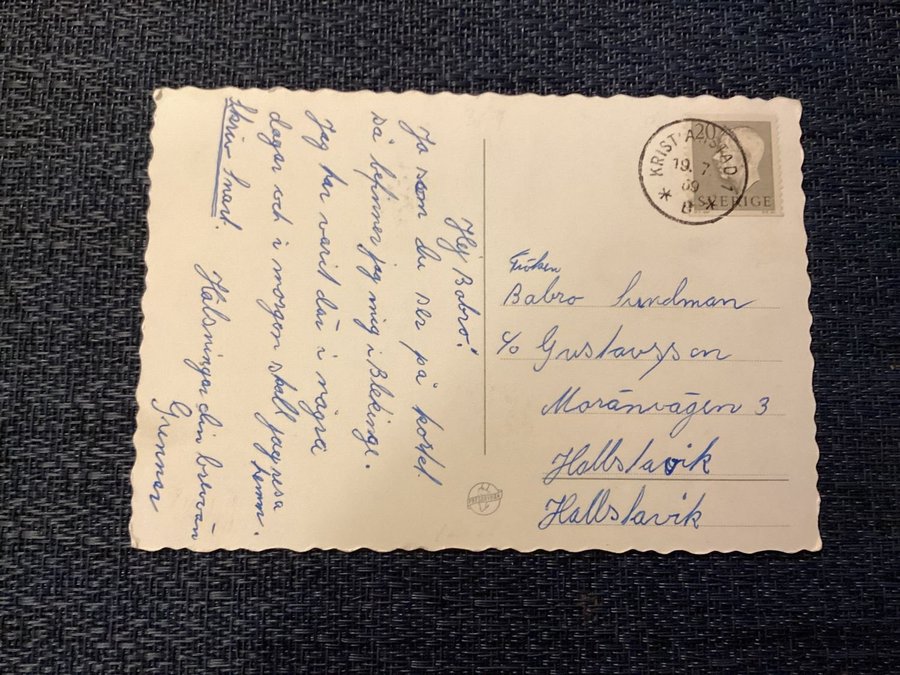 Hej Babro!
Ja som du ser på kortet
så befinner jag mig i Blekinge.
Jag har varit där i några
dagar och i morgon skall jag resa
hemm.
Skriv Snart.
Hälsningar din brevvän
Gunnar
20
SVERIGE
KRISTIANSTAD 1
19. 7
69
Fröken
Babro Sundman
c/o Gustavsson
Moränvägen 3
Hallstavik
Hallstavik